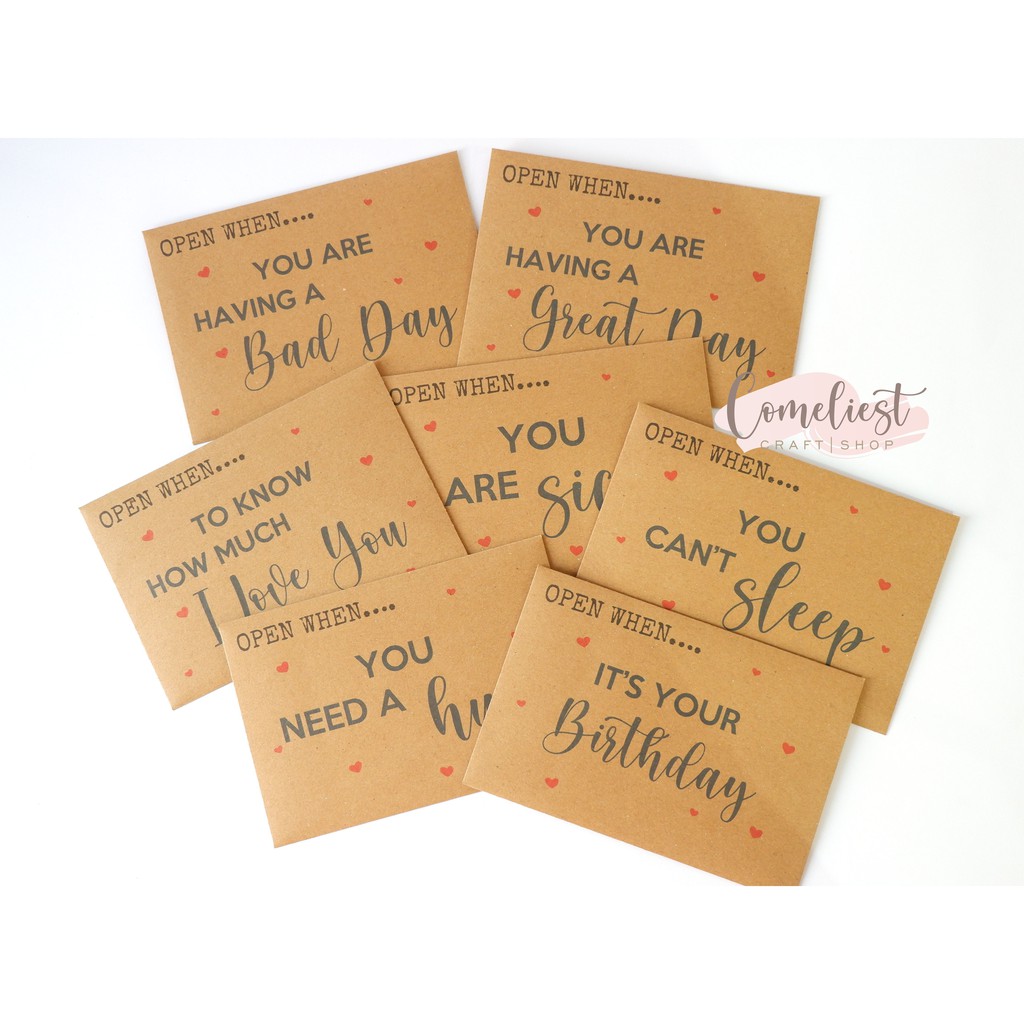 OPEN WHEN....
YOU ARE
HAVING A
Bad Day
OPEN WHEN....
YOU ARE
HAVING A
Great Day
Comeliest
CRAFT|SHOP
OPEN WHEN....
TO KNOW
HOW MUCH
I love You
OPEN WHEN....
YOU
ARE sic
OPEN WHEN....
YOU
CAN'T sleep
OPEN WHEN....
YOU
NEED A hu
OPEN WHEN....
IT'S YOUR
Birthday